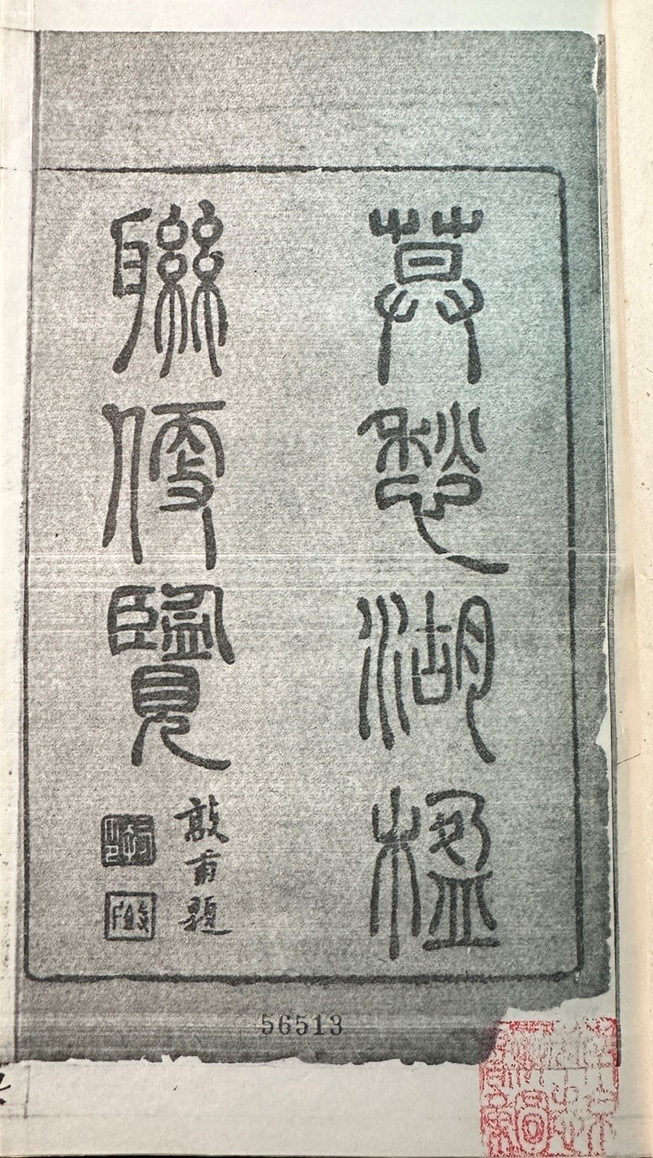 莫愁湖楹
聯便覽
甫題
56513